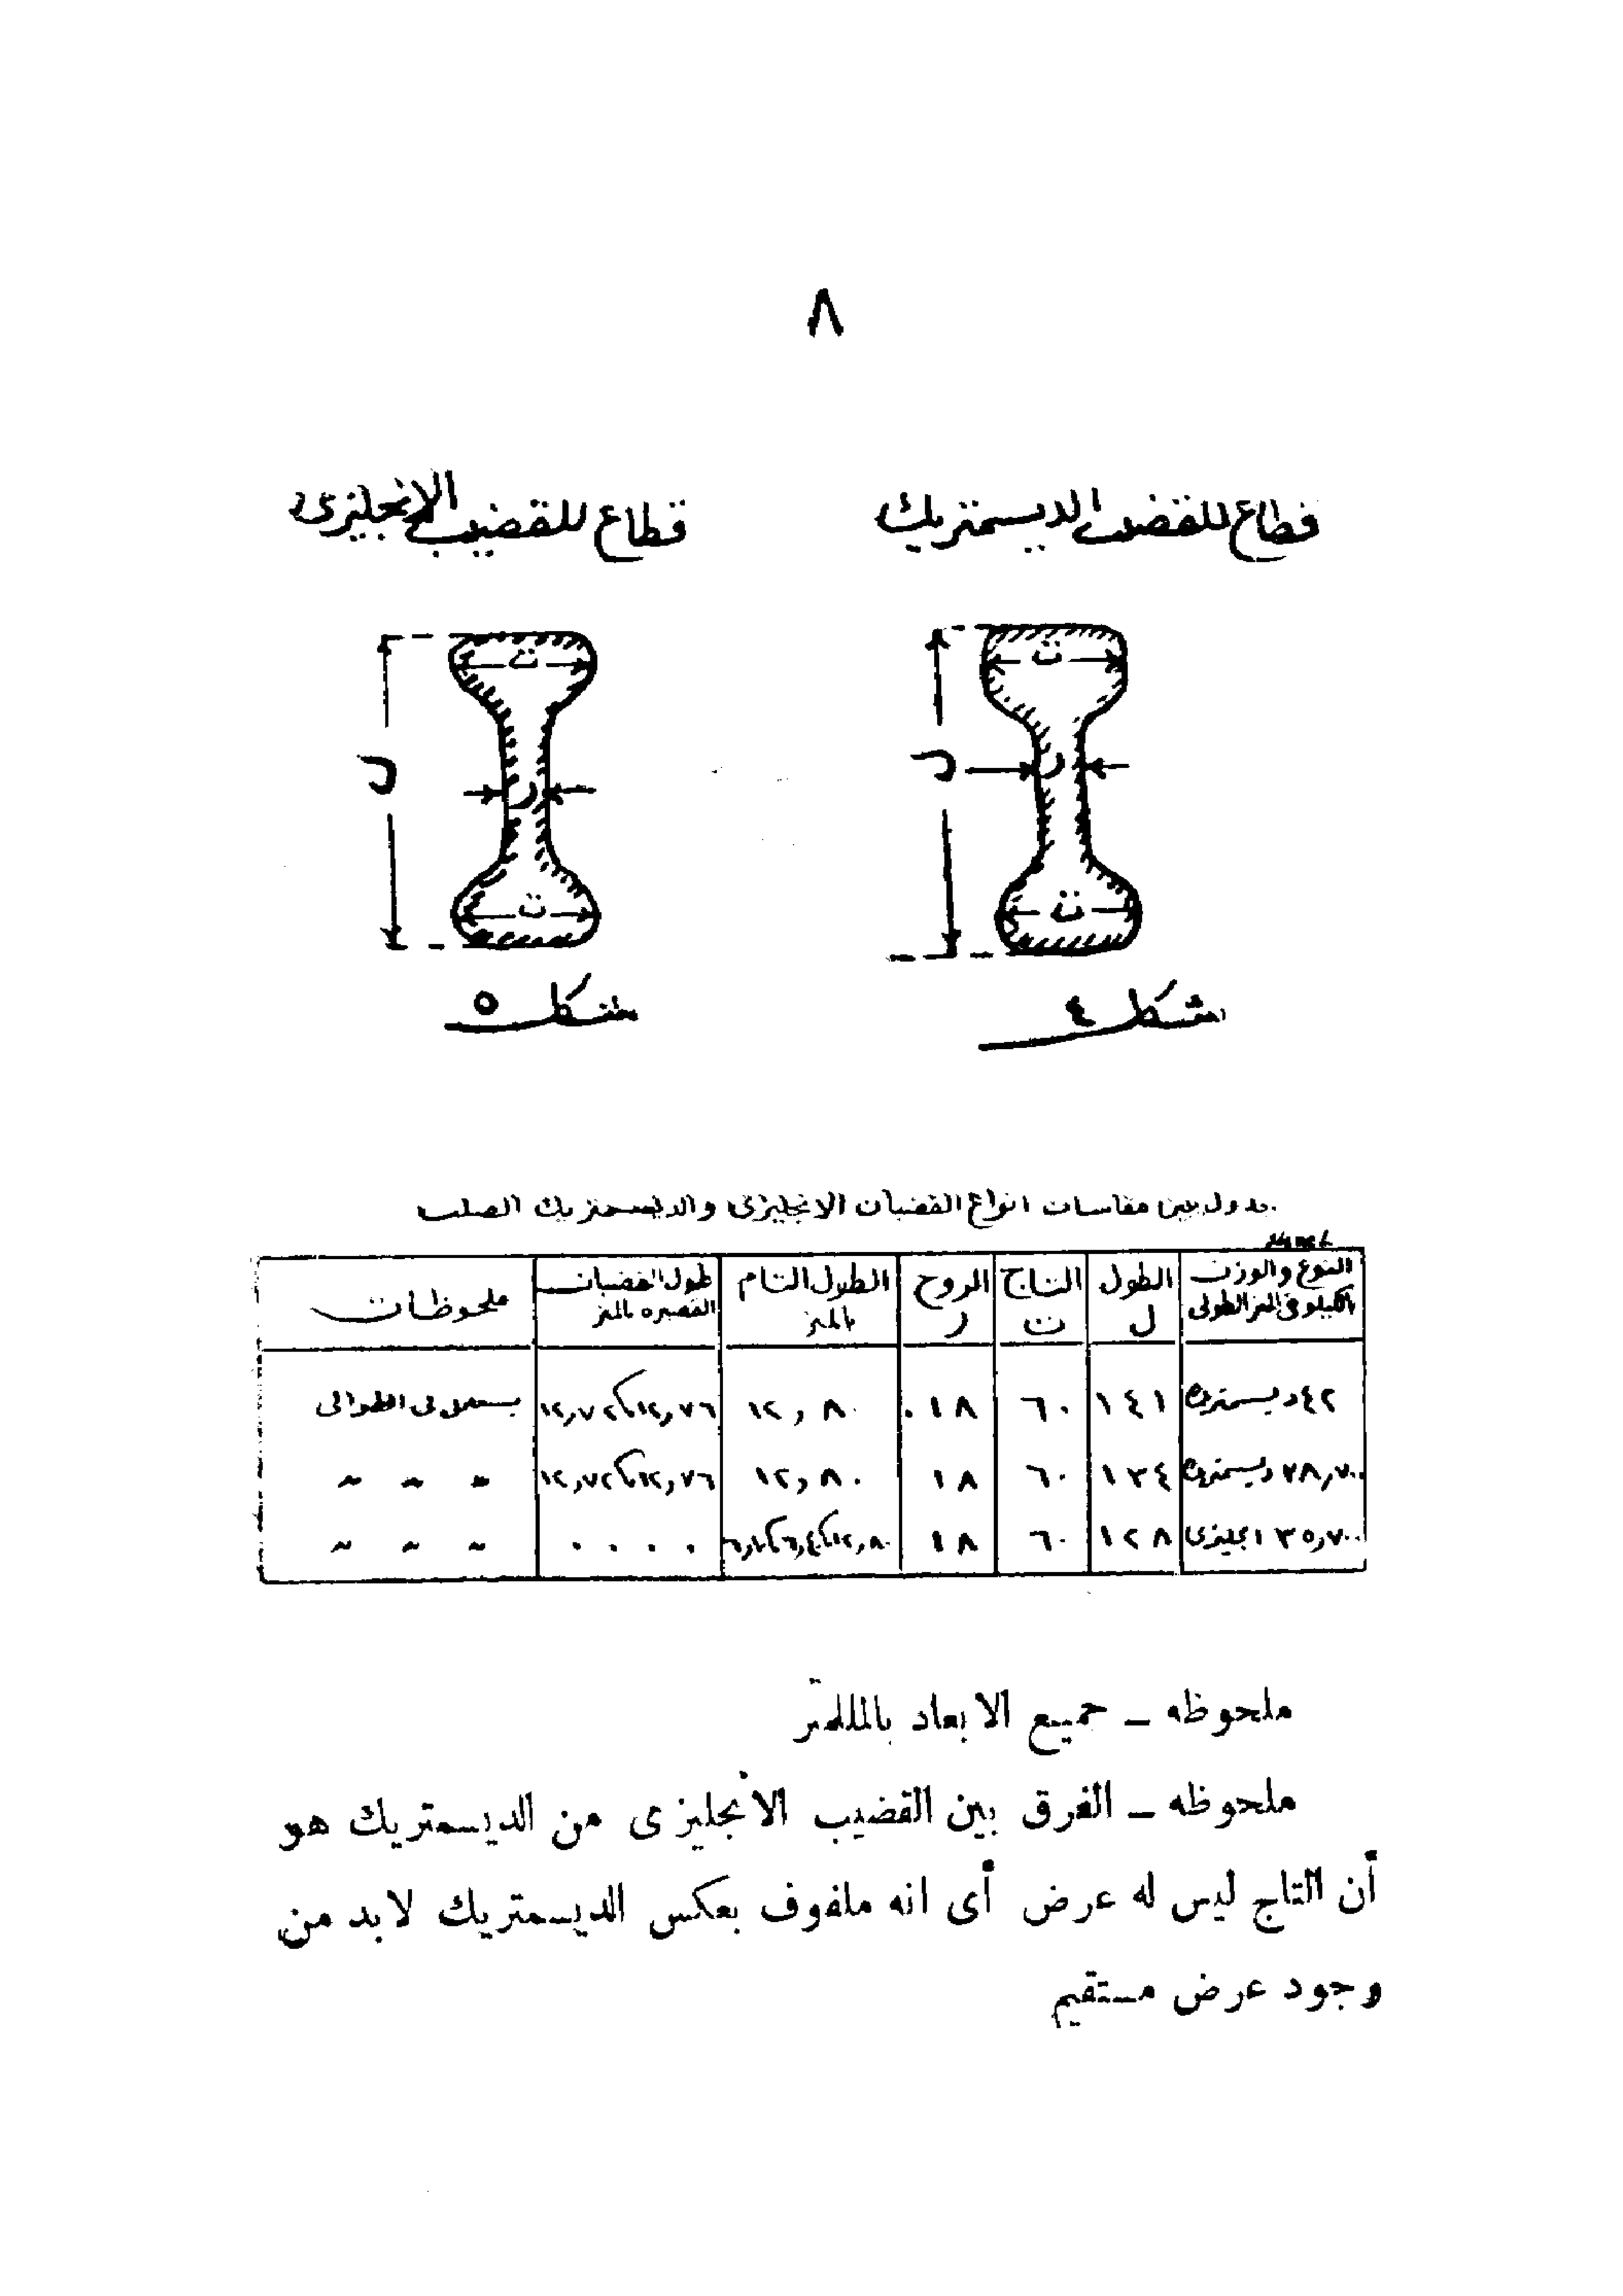 ٨
قطاع للقضيب الديسمتريك
قطاع للقضيب الإنجليزى
ت
ر
ل
ت
شكل ٤
ت
ر
ل
ت
شكل ٥
جدول يبين مقاسات انواع القضبان الانجليزى والديسمتريك الصلب
النوع والوزن بالكيلو فى المتر الطولى | الطول ل | التاج ت | الروح ر | الطول التام بالمتر | طول القضبان القصيره بالمتر | ملحوظات
٤٢ ديسمتريك | ١٤١ | ٦٠ | ١٨ | ١٢,٨٠ | ١٢,٧٦ ١٢,٧٢ | يستعمل فى الطوالى
٣٨,٧٠٠ ديسمتريك | ١٣٤ | ٦٠ | ١٨ | ١٢,٨٠ | ١٢,٧٦ ١٢,٧٢ | " " "
٣٥,٧٠٠ انجليزى | ١٢٨ | ٦٠ | ١٨ | ١٢,٨٠ ٦,٤٠ | . . . . | " " "
ملحوظه – جميع الابعاد بالمللمتر
ملحوظه – الفرق بين القضيب الانجليزى من الديسمتريك هو
أن التاج ليس له عرض أى انه ملفوف بعكس الديسمتريك لابد من
وجود عرض مستقيم